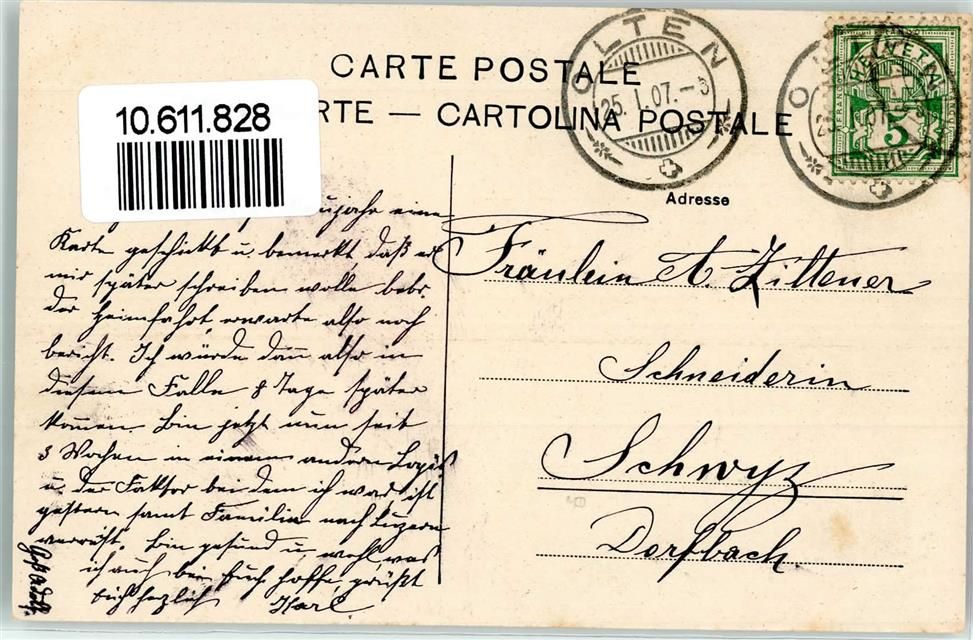 CARTE POSTALE
RTE — CARTOLINA POSTALE
10.611.828
OLTEN
25. I. 07. – 8
HELVETIA
5
Adresse
Fräulein A. Zittener
Schneiderin
Schwyz
Dorfbach.
ujahr eine
Karte geschickt u. bemerkt daß er
mir später schreiben wolle betr.
der Heimfahrt, erwarte also noch
bericht. Ich würde dann also in
diesem Falle 8 Tage später
kommen. Bin jetzt nun seit
3 Wochen in einem andern Logis
u. der Faktor bei dem ich war ist
gestern samt Familie nach Luzern
verreist. Bin gesund u. wohl was
ich auch bei Euch hoffe, grüßt
Euch herzlich Karl